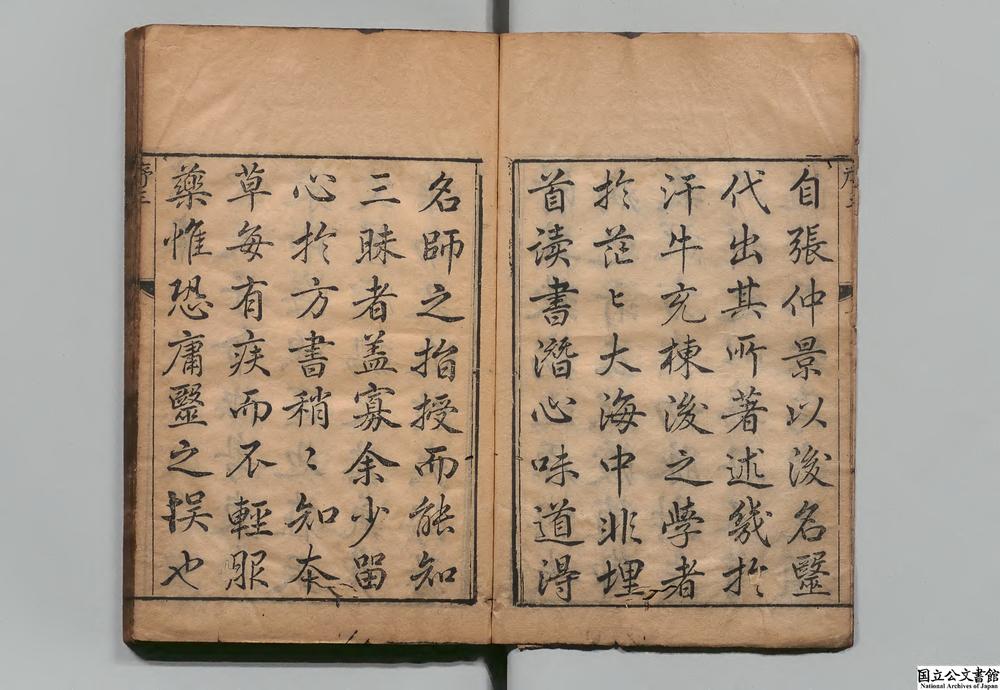 自張仲景以後名醫
代出其所著述幾於
汗牛充棟後之學者
於茫〻大海中非埋
首读書潛心味道得
名師之指授而能知
三昧者盖寡余少留
心於方書稍〻知本
草每有疾而不輕服
藥惟恐庸醫之误也
序三
国立公文書館
National Archives of Japan